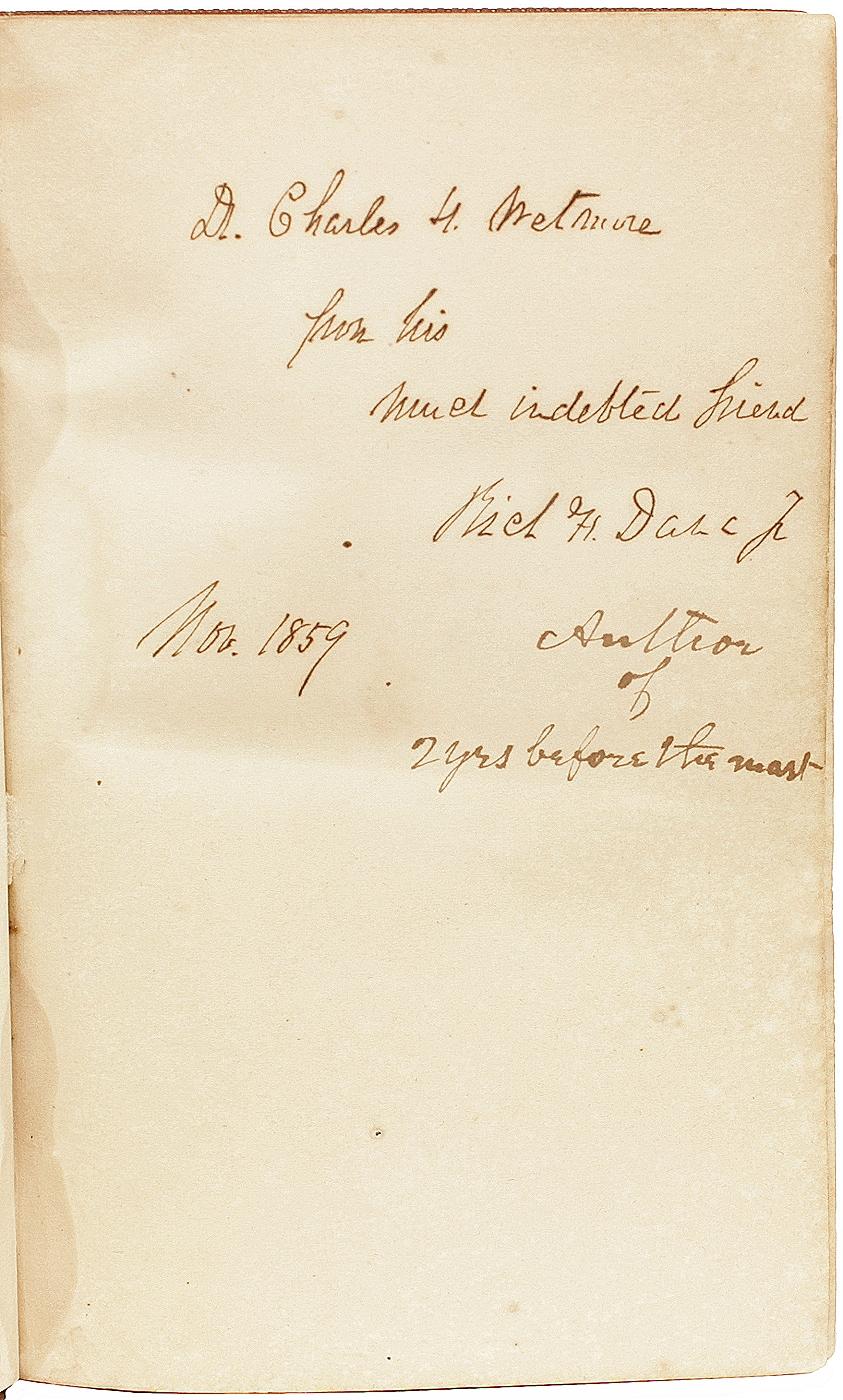 Dr. Charles H. Wetmore
from his
much indebted friend
Rich H. Dana Jr
Nov. 1859
Author
of
2 yrs before the mast